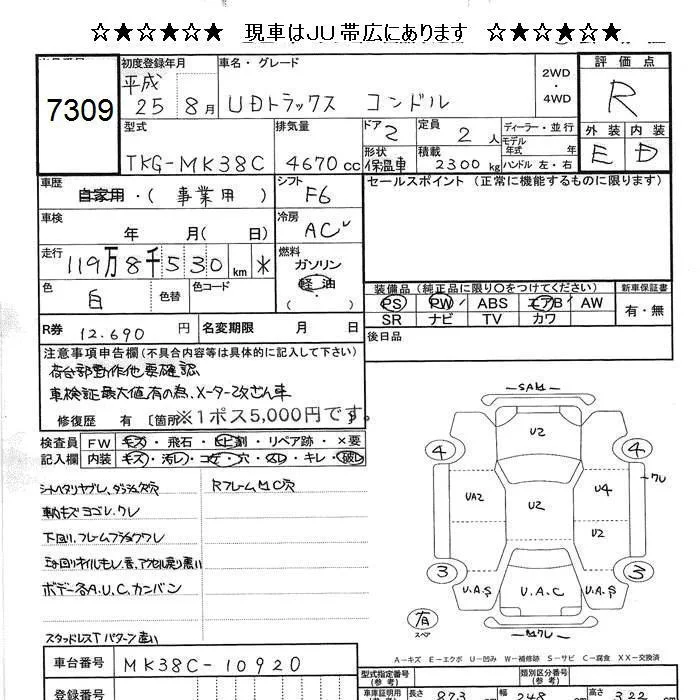 ☆★☆★☆★ 現車はJU帯広にあります ☆★☆★☆★
7309
初度登録年月
平成
25 8月
車名・グレード
UDトラックス コンドル
2WD
・
4WD
評価点
R
外装 内装
E D
型式
TKG-MK38C
排気量
4670cc
ドア 2
形状
保温車
定員 2人
積載
2300kg
ディーラー・並行
モデル
年式 年
ハンドル 左・右
車歴
自家用・(事業用)
シフト
F6
セールスポイント (正常に機能するものに限ります)
車検
年 月( 日)
冷房
AC
走行
119万8千530km *
燃料
ガソリン
軽油
( ・ )
色
白
色替
色コード
装備品(純正品に限り○をつけてください)
PS PW ABS エアB AW
SR ナビ TV カワ
新車保証書
有・無
R券 12.690円
名変期限 月 日
後日品
注意事項申告欄(不具合内容等は具体的に記入して下さい)
荷台部動作他要確認
車検証最大値有の為、メーター改ざん車
修復歴 有 〔箇所
※1ポス5,000円です。
検査員
記入欄
FW キズ・飛石・ヒビ割・リペア跡・×要
内装 キズ・汚レ・コゲ・穴・スレ・キレ・破レ
シートヘタリヤブレ、ダッシュ欠穴
Rフレーム、M〇穴
下回り、フレームサビ
ボデー各A.U.C.カンバン
スタッドレスT パターン違い
SAW
U2
4
4
UA2
U2
U4
U2
クレ
3
3
U.A.S
U.A.C
U.A.S
有
スペア
Mクレ
A-キズ E-エクボ U-凹み W-補修跡 S-サビ C-腐食 XX-交換済
車台番号 MK38C-10920
登録番号
型式指定番号
(参考)
類別区分番号
(参考)
車庫証明用
(参考)
長さ 873
幅 248
高さ 322